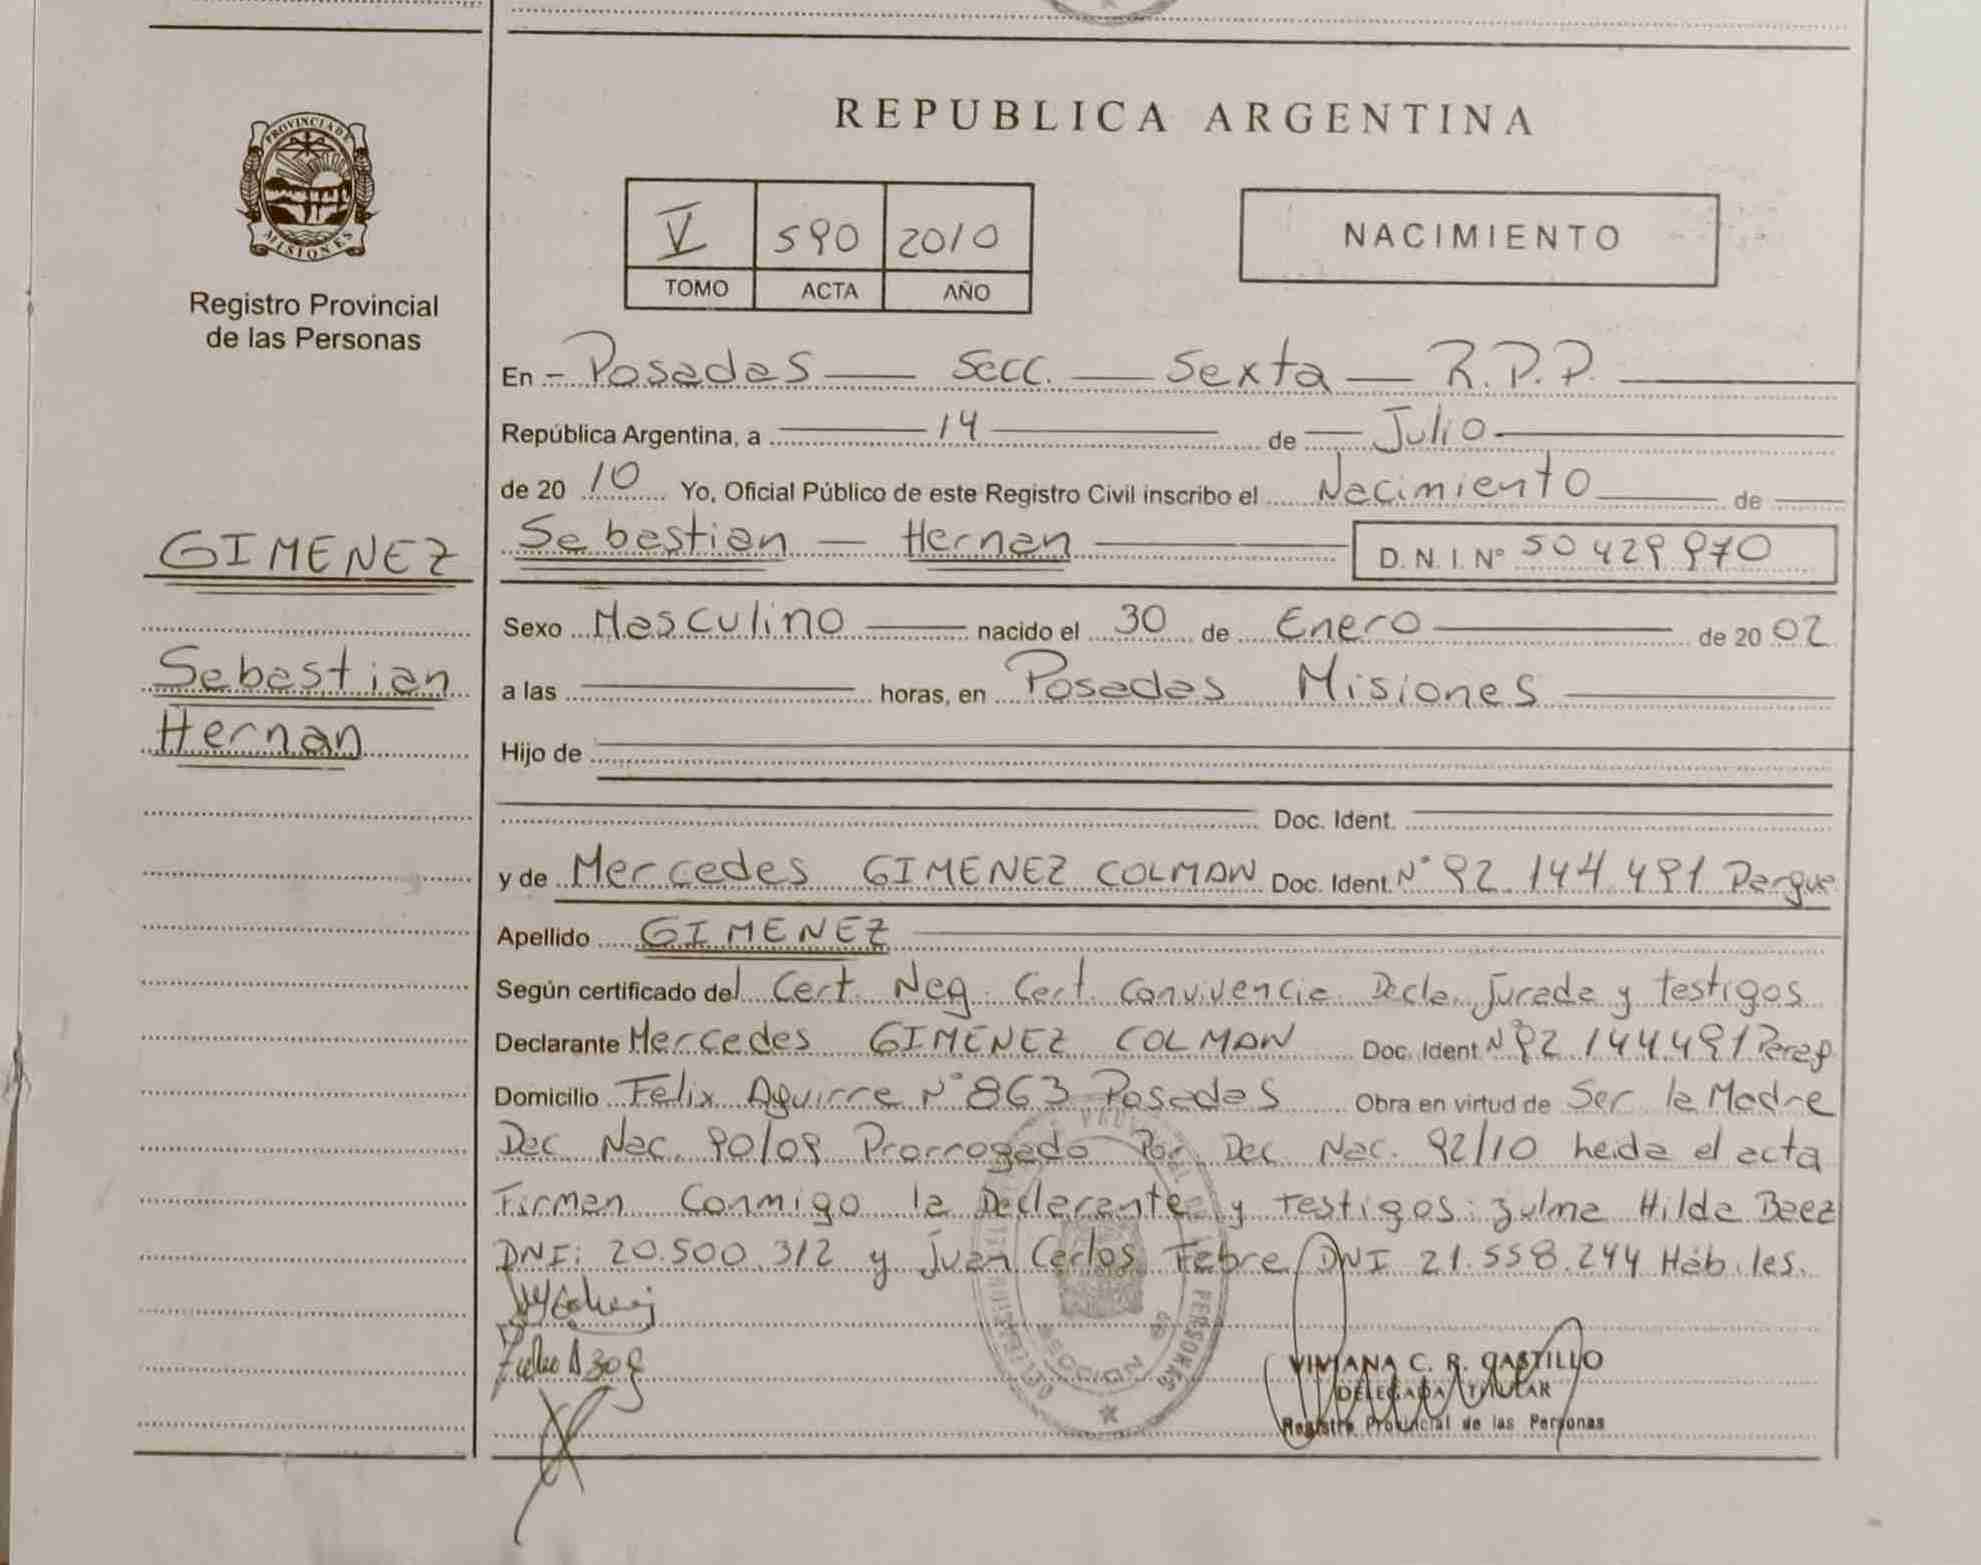 PROVINCIA DE
MISIONES
Registro Provincial
de las Personas
GIMENEZ
Sebastian
Hernan
REPUBLICA ARGENTINA
V 590 2010
TOMO ACTA AÑO
NACIMIENTO
En - Posadas Secc. Sexta R.P.P.
República Argentina, a 14 de Julio
de 20 10 Yo, Oficial Público de este Registro Civil inscribo el Nacimiento de
Sebastian Hernan D.N.I. Nº 50 429 970
Sexo Masculino nacido el 30 de Enero de 20 02
a las horas, en Posadas Misiones
Hijo de
Doc. Ident.
y de Mercedes GIMENEZ COLMAN Doc. Ident. Nº 92.144.491 Pargue
Apellido GIMENEZ
Según certificado del Cert. Neg. Cert. Convivencia Decla. Jurada y testigos
Declarante Mercedes GIMENEZ COLMAN Doc. Ident Nº 92 144.491
Domicilio Felix Aguirre Nº 863 Posadas Obra en virtud de Ser la Madre
Dec Nac. 90/09 Prorrogado Por Dec Nac. 92/10 heida el acta
Firman Conmigo la Declarante y testigos: Zulma Hilda Baez
DNI: 20.500.312 y Juan Carlos Febre DNI 21.558.244 Hábiles.
VIVIANA C. R. CASTILLO
DELEGADA TITULAR
Registro Provincial de las Personas